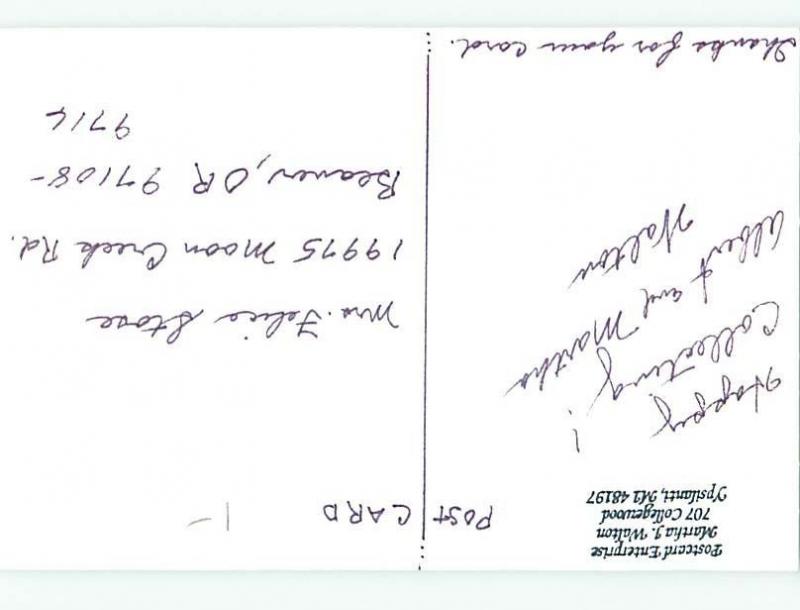 Postcard Enterprise
Martha J. Walton
707 Collegewood
Ypsilanti, MI 48197
POST CARD
1-
Happy
Collecting!
Albert and Martha
Walton
Thanks for your card.
Mrs. Felice Stose
19975 Moon Creek Rd.
Beaver, OR 97108-
9714